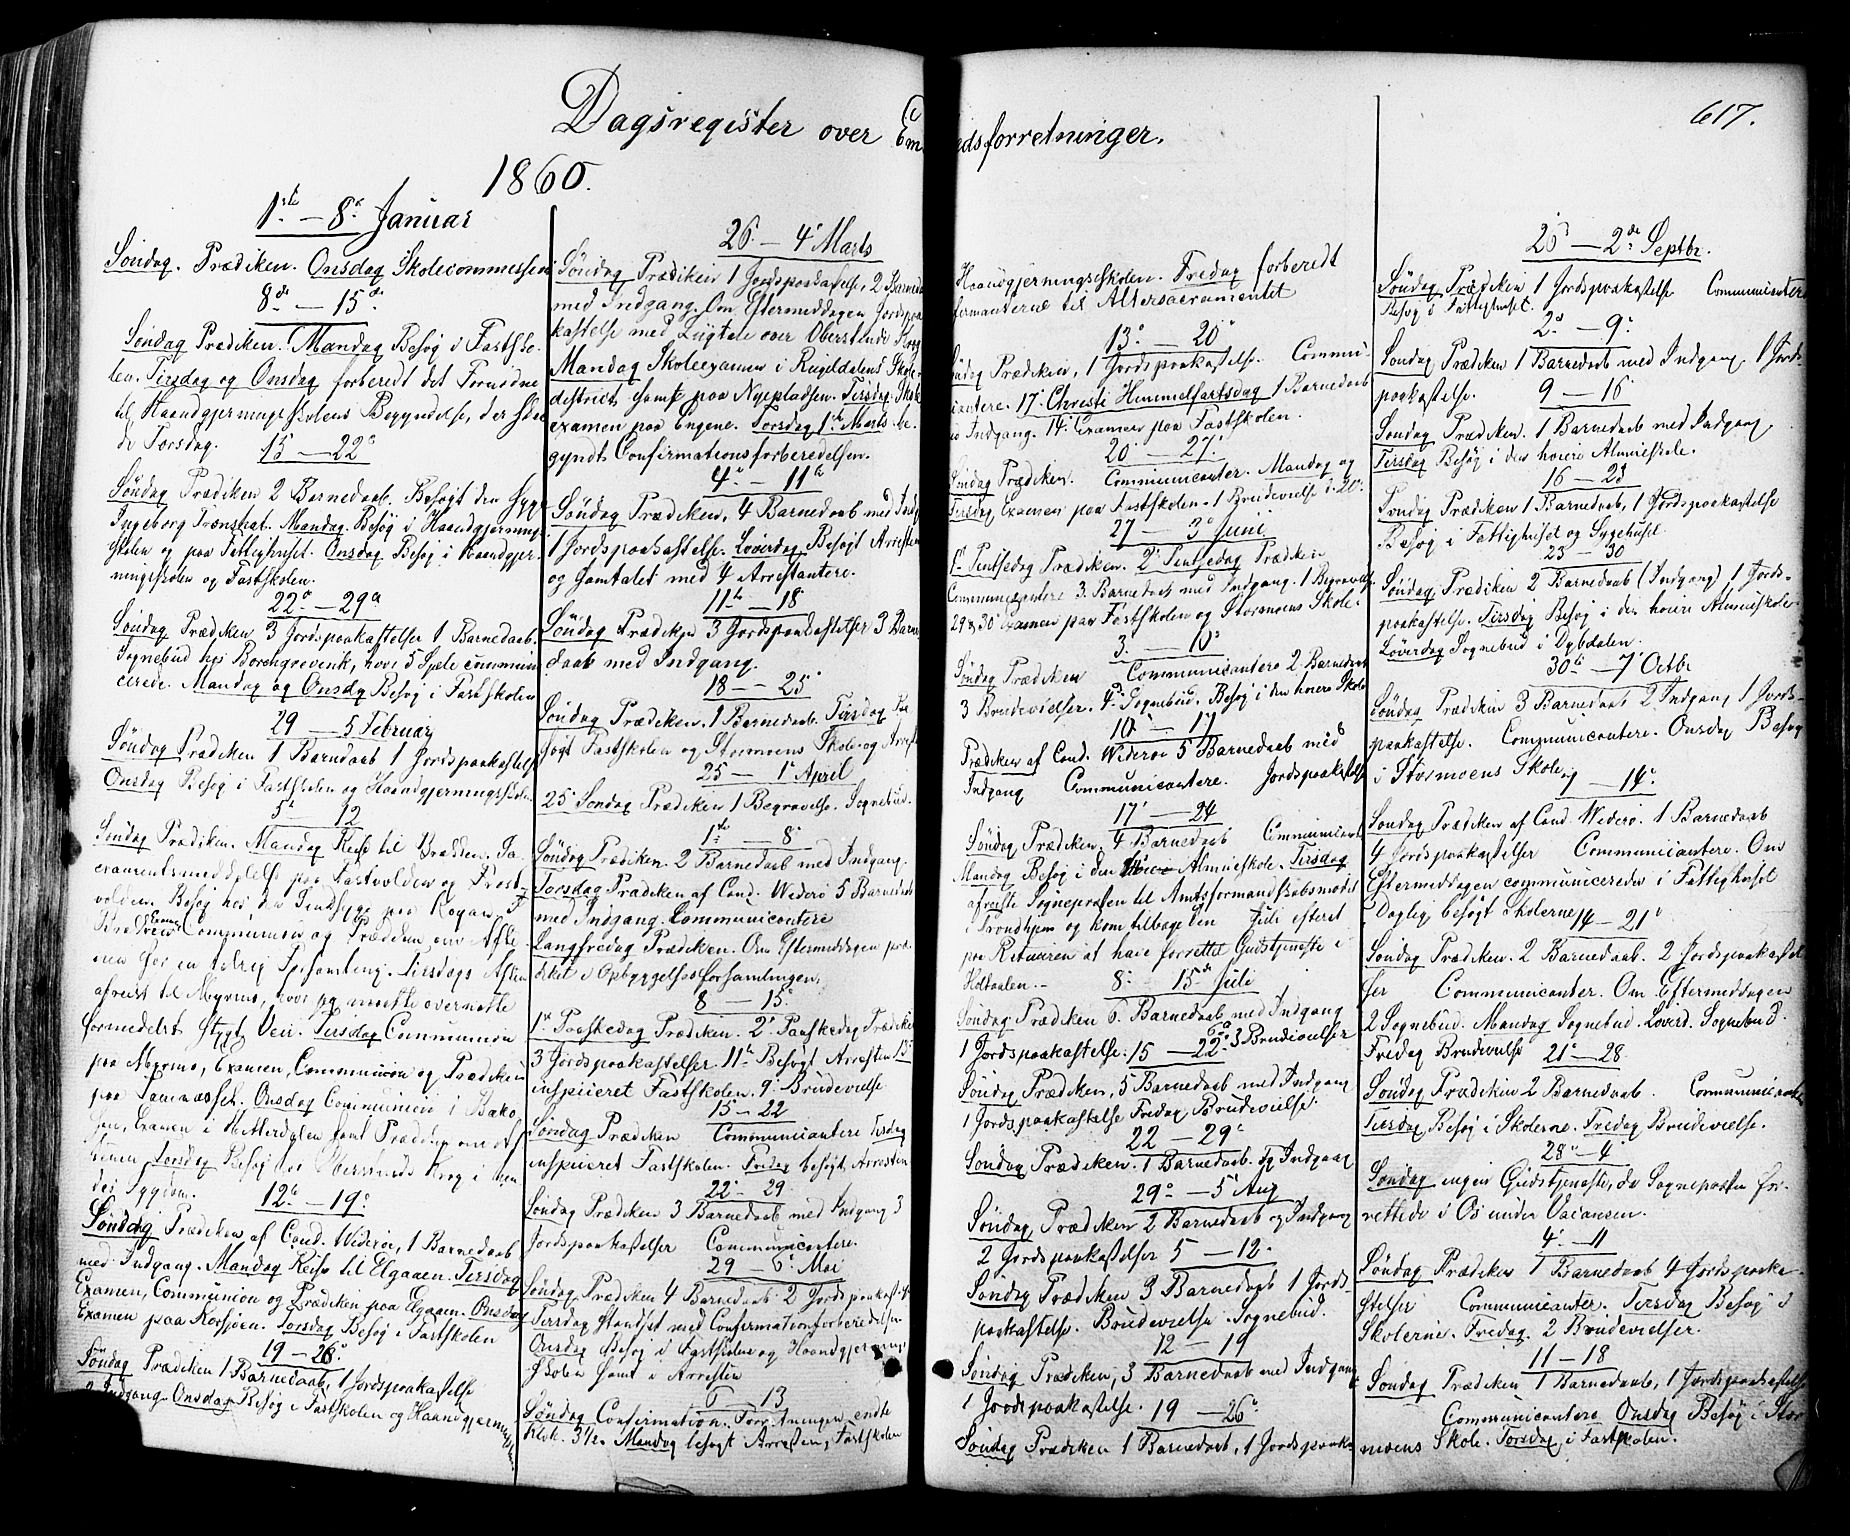 Dagsregister over Em
edsforretninger.
617.
1860.
1ste — 8de Januar
Søndag. Prædiken. Onsdag Skolecommission
8de — 15de
Søndag Prædiken. Mandag Besøg i Fastsko-
len. Tirsdag og Onsdag forberedt det Fornødne
til Haandgjerningsskolens Begyndelse, der skee
de Torsdag.
15 — 22de
Søndag Prædiken 2 Barnedaab. Besøgt den syge
Ingeborg Trønshat. Mandag Besøg i Haandgjernings
skolen og paa Fattighuset. Onsdag Besøg i Haandgjer-
ningsskolen og Fastskolen.
22de — 29de
Søndag Prædiken 3 Jordspaakastelser 1 Barnedaab.
Sognebud hos Borchgrevink, hvor 5 Sjæle commun
cerede. Mandag og Onsdg Besøg i Fastskolen
29 — 5 Februar
Søndag Prædiken 1 Barndaab 1 Jordspaakastelse
Onsdag Besøg i Fastskolen og Haandgjerningsskolen
5 — 12
Søndag Prædiken. Mandag Reise til Brækken. Sa-
cramentsmeddelelse paa
volden. Besøg hos den
Communion og Prædiken om Afte-
nen for en talrig Forsamling. Tirsdags Aften
afreist til Myrmo, hvor jeg maatte overnatte
formedelst stygt Veir. Tirsdag Communion
paa Myrmo, Examen, Communion og Prædiken
paa Tamnæsset. Onsdag Communion i Bako-
sen, Examen i Hitterdalen samt Prædiken om Af
tenen. Torsdag Besøg hos Oberstinde Krog i hen
des Sygdom.
12te — 19de
Søndag Prædiken af Cand. Widerøe, 1 Barnedaab
med Indgang. Mandag Reise til Elgaaen. Tirsdag
Examen, Communion og Prædiken paa Elgaaen. Onsdag
Examen paa Korsjøen. Torsdag Besøg i Fastskolen
19 — 26de
Søndag Prædiken 1 Barnedaab, 1 Jordspaakastelse
2 Indgang. Onsdag Besøg i Fastskolen og Haandgjerningssk
26 — 4de Marts
Søndag Prædiken 1 Jordspaakastelse, 2 Barneda
med Indgang. Om Eftermiddagen Jordspaa
kastelse med Liigtale over Oberstinde Krog
Mandag Skoleexamen i Rugldalens Skole-
district samt paa Nyepladsen. Tirsdag Skole
examen paa Engene. Torsdag 1ste Marts be-
gyndt Confirmationsforberedelsen.
4de — 11te
Søndag Prædiken, 4 Barnedaab med Indg
1 Jordspaakastelse. Løverdag Besøgt Arresten
og samtalet med 4 Arrestantere.
11te — 18
Søndag Prædiken 3 Jordspaakastelser 3 Barne
daab med Indgang.
18 — 25de
Søndag Prædiken, 1 Barnedaab. Tirsdag Be
søgt Fastskolen og Stormoens Skole og Arrest
25 — 1ste April
25de Søndag Prædiken 1 Begravelse. Sognebud.
1ste — 8de
Søndag Prædiken. 2 Barnedaab med Indgang.
Torsdag Prædiken af Cand. Widerø 5 Barnedaab
med Indgang. Communicantere
Langfredag Prædiken. Om Eftermiddagen præ-
diket i Opbyggelsesforsamlingen.
8 — 15de
1ste Paaskedag Prædiken. 2den Paaskedag Prædike
3 Jordspaakastelser. 11te Besøgt Arresten 13de
inspiceret Fastskolen. 9de Brudevielse
15 — 22
Søndag Prædiken Communicantere Tirsdag
inspiceret Fastskolen. Fredag besøgt Arresten
22 — 29
Søndag Prædiken 3 Barnedaab med Indgang 3
Jordspaakastelser Communicantere.
29 — 6de Mai
Søndag Prædiken 4 Barnedaab 2 Jordspaakast
Tirsdag Standset med Confirmationsforberedelsen
Onsdag Besøg i Fastskolen og Haandgjernings
skolen samt i Arresten
6 13
Søndag Confirmation. endte
Klok. 3½. Mandag besøgt Arresten, Fastskolen
Haandgjerningsskolen. Fredag forberedt
firmanterne til Altersacramentet
13de — 20de
Søndag Prædiken, 1 Jordspaakastelse. Commu-
icantere. 17de Christi Himmelfartsdag 1 Barnedaab
Indgang. 14de Examen paa Fastskolen.
20 — 27de
Søndag Prædiken. Communicanter. Mandag og
Tirsdag Examen paa Fastskolen. 1 Brudevielse d. 20de
27 — 3de Juni
1ste Pintsedag Prædiken. 2den Pintsedag Prædiken
Communicantere 3 Barnedaab med Indgang. 1 Begravelse
29 & 30 Examen paa Fastskolen og Stormoens Skole.
3. — 10de
Søndag Prædiken Communicantere 2 Barnedaab
3 Brudevielser. 4de Sognebud. Besøg i den høiere Skole
10de — 17
Prædiken af Cand. Widerøe 5 Barnedaab med
Indgang Communicantere. Jordspaakastelse
17de — 24
Søndag Prædiken. 4 Barnedaab Communicant
Mandag Besøg i den høiere Almueskole. Tirsdag
afreiste Sognepresten til Amtsformandskabsmødet
i Trondhjem og kom tilbage den Juli efteret
paa Retouren at have forrettet Gudstjeneste i
Holtaalen.
8de 15de Juli
Søndag Prædiken 6 Barnedaab med Indgang
1 Jordspaakastelse. 3 Brudevielser
15 — 22de
Søndag Prædiken, 5 Barnedaab med Indgang
1 Jordspaakastelse Fredag Brudevielse
22 — 29de
Søndag Prædiken. 1 Barnedaab. og Indgang
29de — 5te Aug
Søndag Prædiken 2 Barnedaab og Indgang
2 Jordspaakastelser
5 — 12.
Søndag Prædiken 3 Barnedaab 1 Jords-
paakastelse. Brudevielse Sognebud.
12 — 19
Søndag Prædiken, 3 Barnedaab med Indgang
1 Jordspaakastelse.
19 — 26de
Søndag Prædiken 1 Barnedaab, 1 Jordspaaka-
26de — 2den Septbr.
Søndag Prædiken 1 Jordspaakastelse Communicantere
Besøg i Fattighuset.
2den — 9de
Søndag Prædiken 1 Barnedaab med Indgang. 1 Jords-
paakastelse.
9 — 16
Søndag Prædiken. 1 Barnedaab med Indgang
Tirsdag Besøg i den høiere Almueskole.
16 — 23
Søndag Prædiken 1 Barnedaab, 1 Jordspaakastelse
Besøg i Fattighuset og Sygehuset.
23 — 30
Søndag Prædiken 2 Barnedaab (Indgang) 1 Jords-
paakastelse. Tirsdag Besøg i den høiere Almueskole
Løverdag Sognebud i Dybdalen.
30te — 7de Octbr
Søndag Prædiken 3 Barnedaab 2 Indgang 1 Jords-
paakastelse. Communicantere. Onsdag Besøg
i Stormoens Skole.
7 — 14de
Søndag Prædiken af Cand. Widerø. 1 Barnedaab
4 Jordspaakastelser Communicantere. Om
Eftermiddagen communiceredes i Fattighuset
Daglig besøgt Skolerne
14 — 21de
Søndag Prædiken. 2 Barnedaab. 2 Jordspaakastel
ser Communicanter. Om Eftermiddagen
2 Sognebud. Mandag Sognebud. Løverd. Sognebud.
Fredag Brudevielse
21de — 28
Søndag Prædiken 2 Barnedaab. Communicantere
Tirsdag Besøg i Skolerne. Fredag Brudevielse.
28de — 4
Søndag ingen Gudstjeneste, da Sognepresten for-
rettede i Os under Vacansen.
4de — 11
Søndag Prædiken 1 Barnedaab 4 Jordspaaka-
stelser Communicanter. Tirsdag Besøg i
Skolerne. Fredag 2 Brudevielser.
11 — 18
Søndag Prædiken 1 Barnedaab, 1 Jordspaakastelse
Communicantere Onsdag Besøg i Stor
moens Skole. Torsdag i Fastskolen.